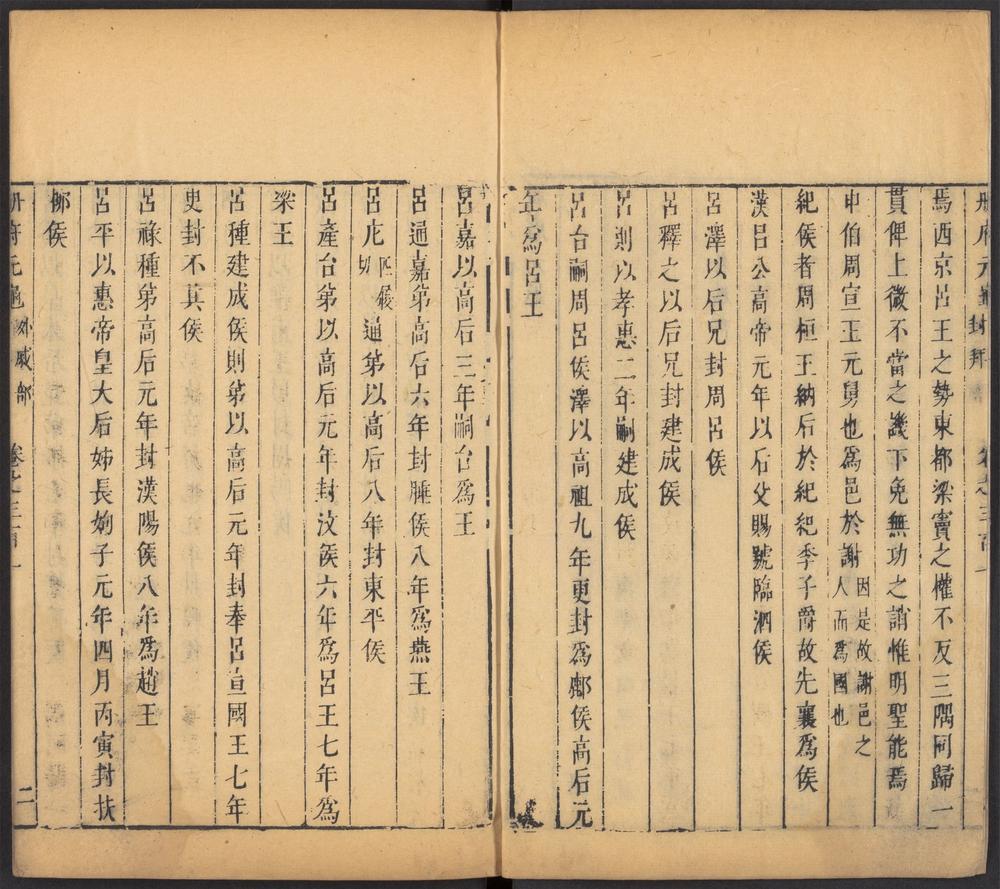 冊府元龜 封拜 卷之三百一
焉西京呂王之勢東都梁竇之權不反三隅同歸一
貫俾上微不當之譏下免無功之誚惟明聖能焉
申伯周宣王元舅也為邑於謝因是故謝邑之人而為國也
紀侯者周桓王納后於紀紀季子爵故先襄為侯
漢呂公高帝元年以后父賜號臨泗侯
呂澤以后兄封周呂侯
呂釋之以后兄封建成侯
呂則以孝惠二年嗣建成侯
呂台嗣周呂侯澤以高祖九年更封為酈侯高后元
年為呂王
呂嘉以高后三年嗣台為王
呂通嘉第高后六年封腄侯八年為燕王
呂庀匹履切通第以高后八年封東平侯
呂產台第以高后元年封汶侯六年為呂王七年為
梁王
呂種建成侯則第以高后元年封奉呂宣國王七年
史封不其侯
呂祿種第高后元年封漢陽侯八年為趙王
呂平以惠帝皇大后姊長姁子元年四月丙寅封扶
柳侯
冊府元龜 外戚部 卷之三百一 二